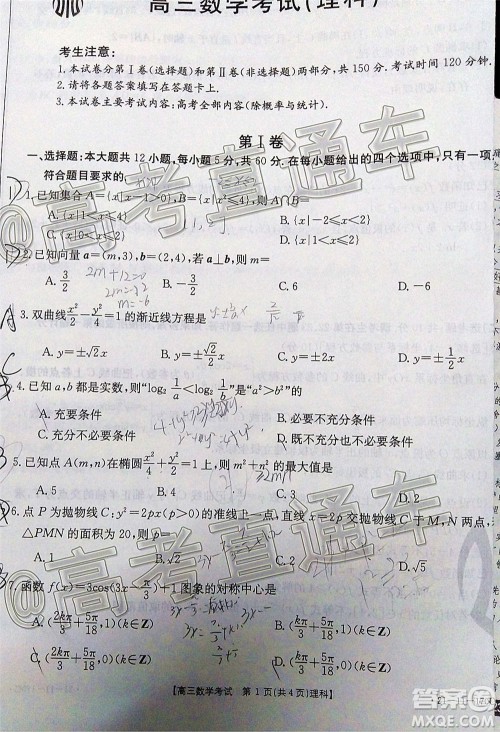 高三数学考试(理科)
考生注意:
1.本试卷分第Ⅰ卷(选择题)和第Ⅱ卷(非选择题)两部分,共150分.考试时间120分钟.
2.请将各题答案填写在答题卡上.
3.本试卷主要考试内容:高考全部内容(除概率与统计).
第Ⅰ卷
一、选择题:本大题共12小题,每小题5分,共60分.在每小题给出的四个选项中,只有一项
符合题目要求的.
1.已知集合A={x|x-1>0},B={x|x²≤4},则A∩B=
A.{x|1≤x<2} B.{x|-2<x<2}
C.{x|0<x≤2} D.{x|1<x≤2}
2.已知向量a=(m,3),b=(2,4),若a⊥b,则m=
A.3/2 B.-3/2 C.6 D.-6
2m+12=0
2m=-12
m=-6
3.双曲线x²/2-y²/4=1的渐近线方程是
A.y=±√2x B.y=±√2/2x C.y=±2x D.y=±1/2x
4.已知a,b都是实数,则“log₂1/a<log₂1/b”是“a²>b²”的
A.充要条件 B.必要不充分条件
C.充分不必要条件 D.既不充分也不必要条件
5.已知点A(m,n)在椭圆x²/4+y²/2=1上,则m²+n²的最大值是
A.5 B.4 C.3 D.2
6.点P为抛物线C:y²=2px(p>0)的准线上一点,直线x=2p交抛物线C于M,N两点,若
△PMN的面积为20,则p=
A.1 B.√2 C.2 D.√5
7.函数f(x)=3cos(3x-π/3)+1图象的对称中心是
A.(2kπ/3+5π/18,1)(k∈Z) B.(kπ/3+5π/18,1)(k∈Z)
C.(2kπ/3+5π/18,0)(k∈Z) D.(kπ/3+5π/18,0)(k∈Z)
【高三数学考试 第1页(共4页)理科】
@高考直通车
@高考直通车
@高考直通车
答案圈
MXQE.COM